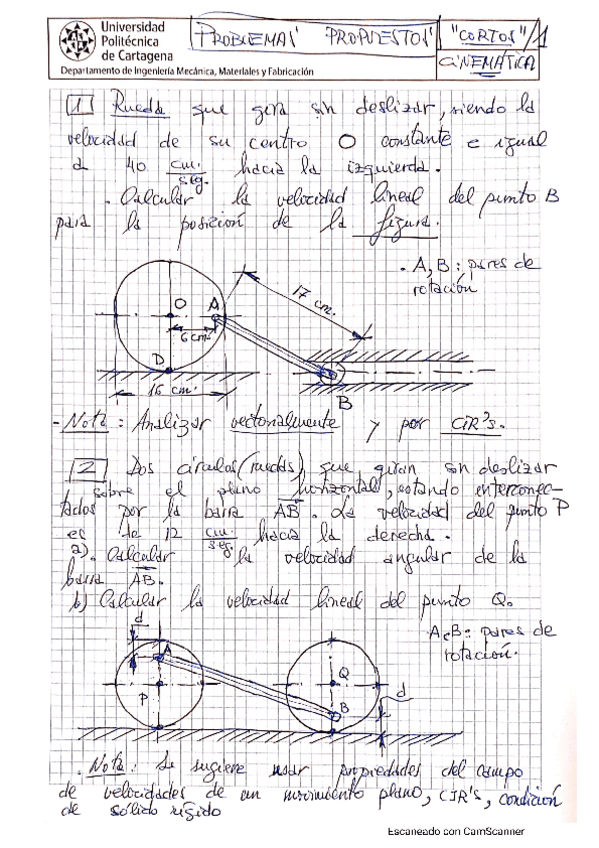 Universidad
Politécnica
de Cartagena
Departamento de Ingeniería Mecánica, Materiales y Fabricación
PROBLEMAS PROPUESTOS
"CORTOS"/1
CINEMÁTICA
1 Rueda que gira sin deslizar, siendo la
velocidad de su centro O constante e igual
a 40 cm./seg. hacia la izquierda.
. Calcular la velocidad lineal del punto B
para la posición de la figura.
. A, B: pares de
rotación
17 cm.
O
A
6 cm
D
16 cm.
B
- Nota: Analizar vectorialmente y por CIR's.
2 Dos círculos (ruedas), que giran sin deslizar
sobre el plano horizontal, estando interconec-
tados por la barra AB. La velocidad del punto P
es de 12 cm/seg. hacia la derecha.
a). Calcular la velocidad angular de la
barra AB.
b) Calcular la velocidad lineal del punto Q.
A, B: pares de
rotación.
d
A
P
Q
B
d
. Nota: Se sugiere usar propiedades del campo
de velocidades de un movimiento plano, CIR's, condición
de sólido rígido
Escaneado con CamScanner